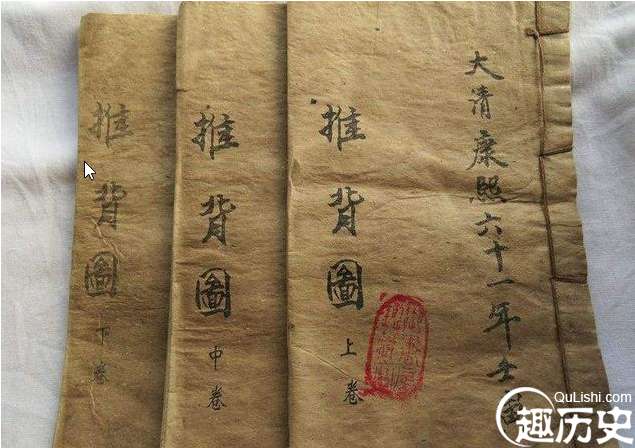 大清康熙六十一年
推背圖
上卷
推背圖
中卷
推背圖
下卷
QuLishi.com
趣历史